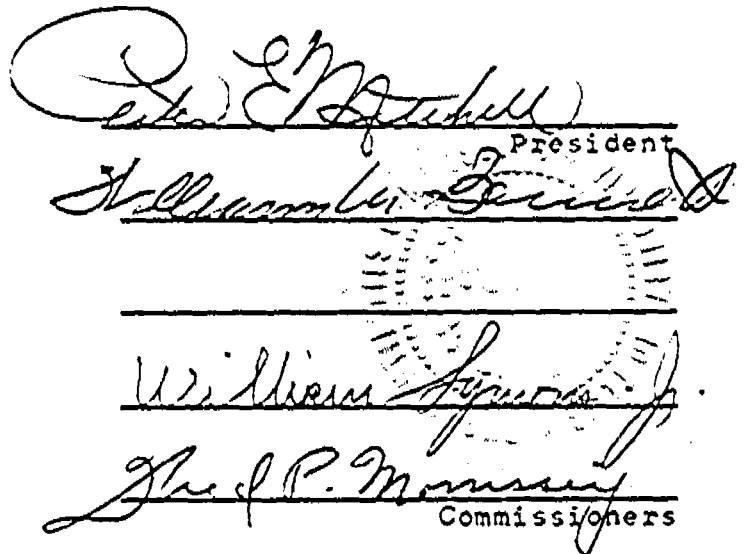 Peter E Mitchell
President
William
William Symons Jr.
Fred P. Morrissey
Commissioners